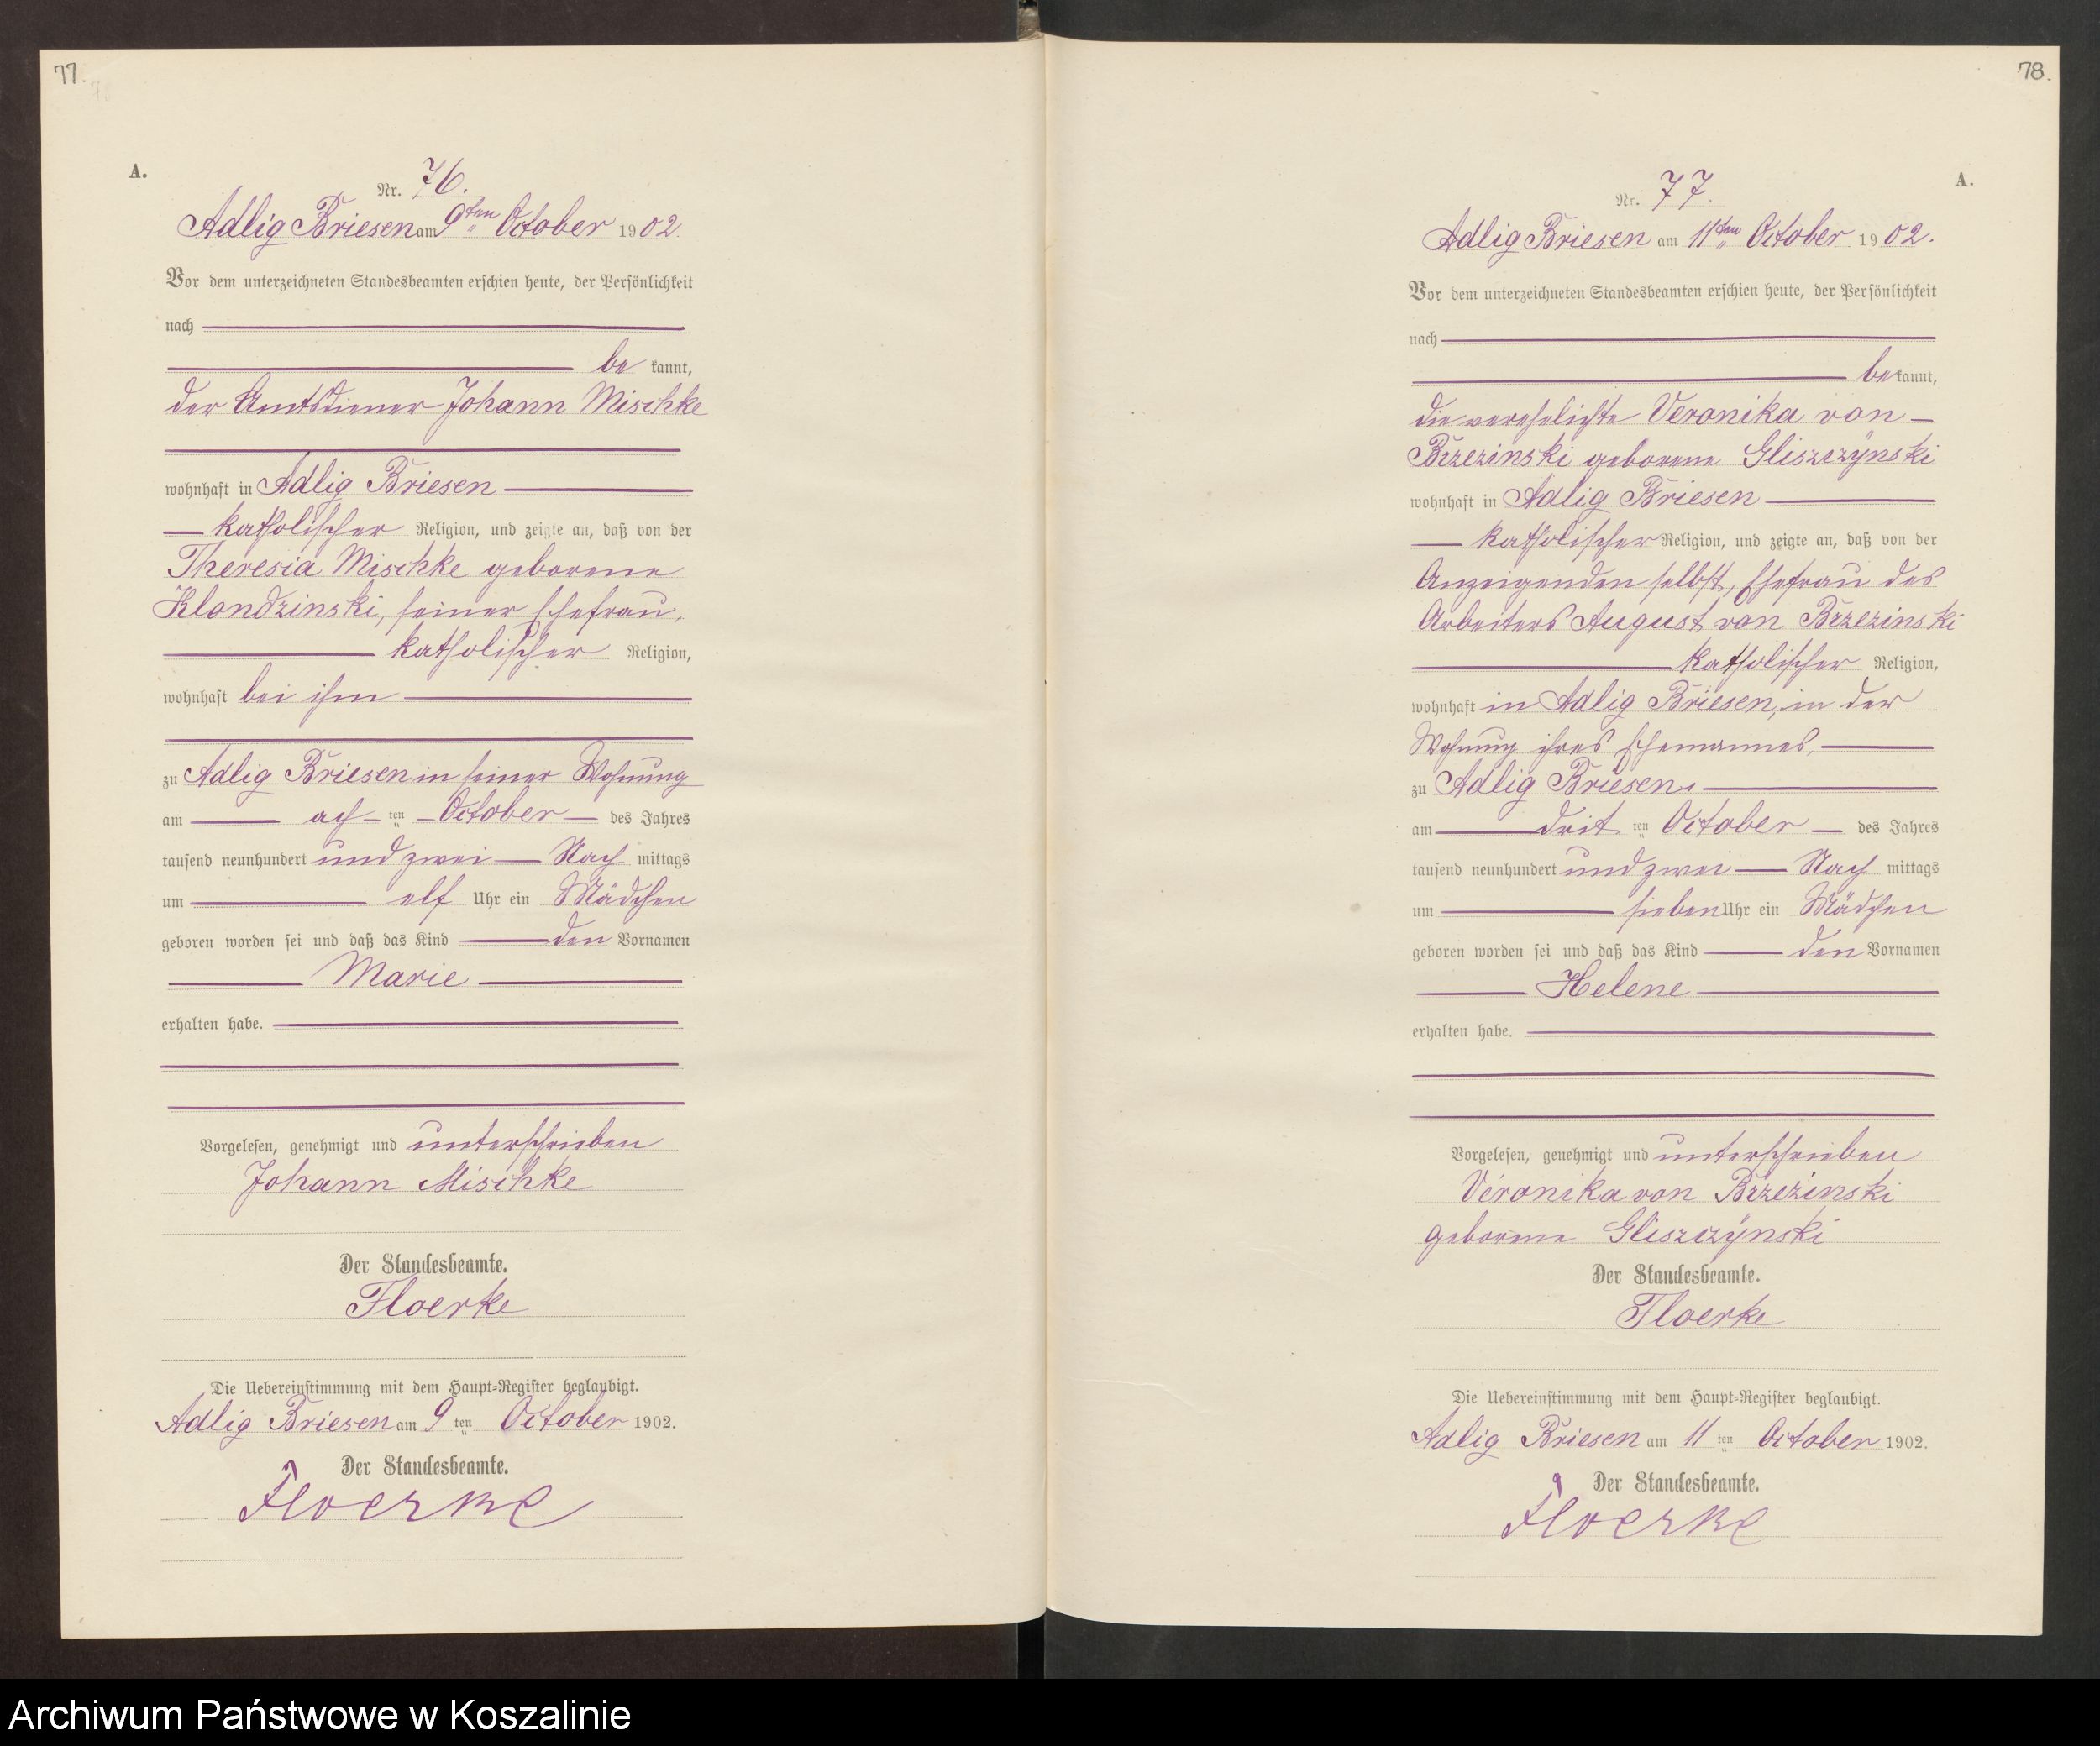 77.
A.
Nr. 76.
Adlig Briesen am 9ten October 1902.
Vor dem unterzeichneten Standesbeamten erschien heute, der Persönlichkeit
nach
be kannt,
der Amtsdiener Johann Mischke
wohnhaft in Adlig Briesen
katholischer Religion, und zeigte an, daß von der
Theresia Mischke geborene
Klondzinski, seiner Ehefrau,
katholischer Religion,
wohnhaft bei ihm
zu Adlig Briesen in seiner Wohnung
am ach ten October des Jahres
tausend neunhundert und zwei Nach mittags
um elf Uhr ein Mädchen
geboren worden sei und daß das Kind den Vornamen
Marie
erhalten habe.
Vorgelesen, genehmigt und unterschrieben
Johann Mischke
Der Standesbeamte.
Floerke
Die Uebereinstimmung mit dem Haupt-Register beglaubigt.
Adlig Briesen am 9 ten October 1902.
Der Standesbeamte.
Floerke
78.
A.
Nr. 77.
Adlig Briesen am 11ten October 1902.
Vor dem unterzeichneten Standesbeamten erschien heute, der Persönlichkeit
nach
be kannt,
die verehelichte Veronika von
Brzezinski geborene Gliszczynski
wohnhaft in Adlig Briesen
katholischer Religion, und zeigte an, daß von der
Anzeigenden selbst, Ehefrau des
Arbeiters August von Brzezinski
katholischer Religion,
wohnhaft in Adlig Briesen, in der
Wohnung ihres Ehemannes,
zu Adlig Briesen,
am drit ten October des Jahres
tausend neunhundert und zwei Nach mittags
um sieben Uhr ein Mädchen
geboren worden sei und daß das Kind den Vornamen
Helene
erhalten habe.
Vorgelesen, genehmigt und unterschrieben
Veronika von Brzezinski
geborene Gliszczynski
Der Standesbeamte.
Floerke
Die Uebereinstimmung mit dem Haupt-Register beglaubigt.
Adlig Briesen am 11 ten October 1902.
Der Standesbeamte.
Floerke
Archiwum Państwowe w Koszalinie